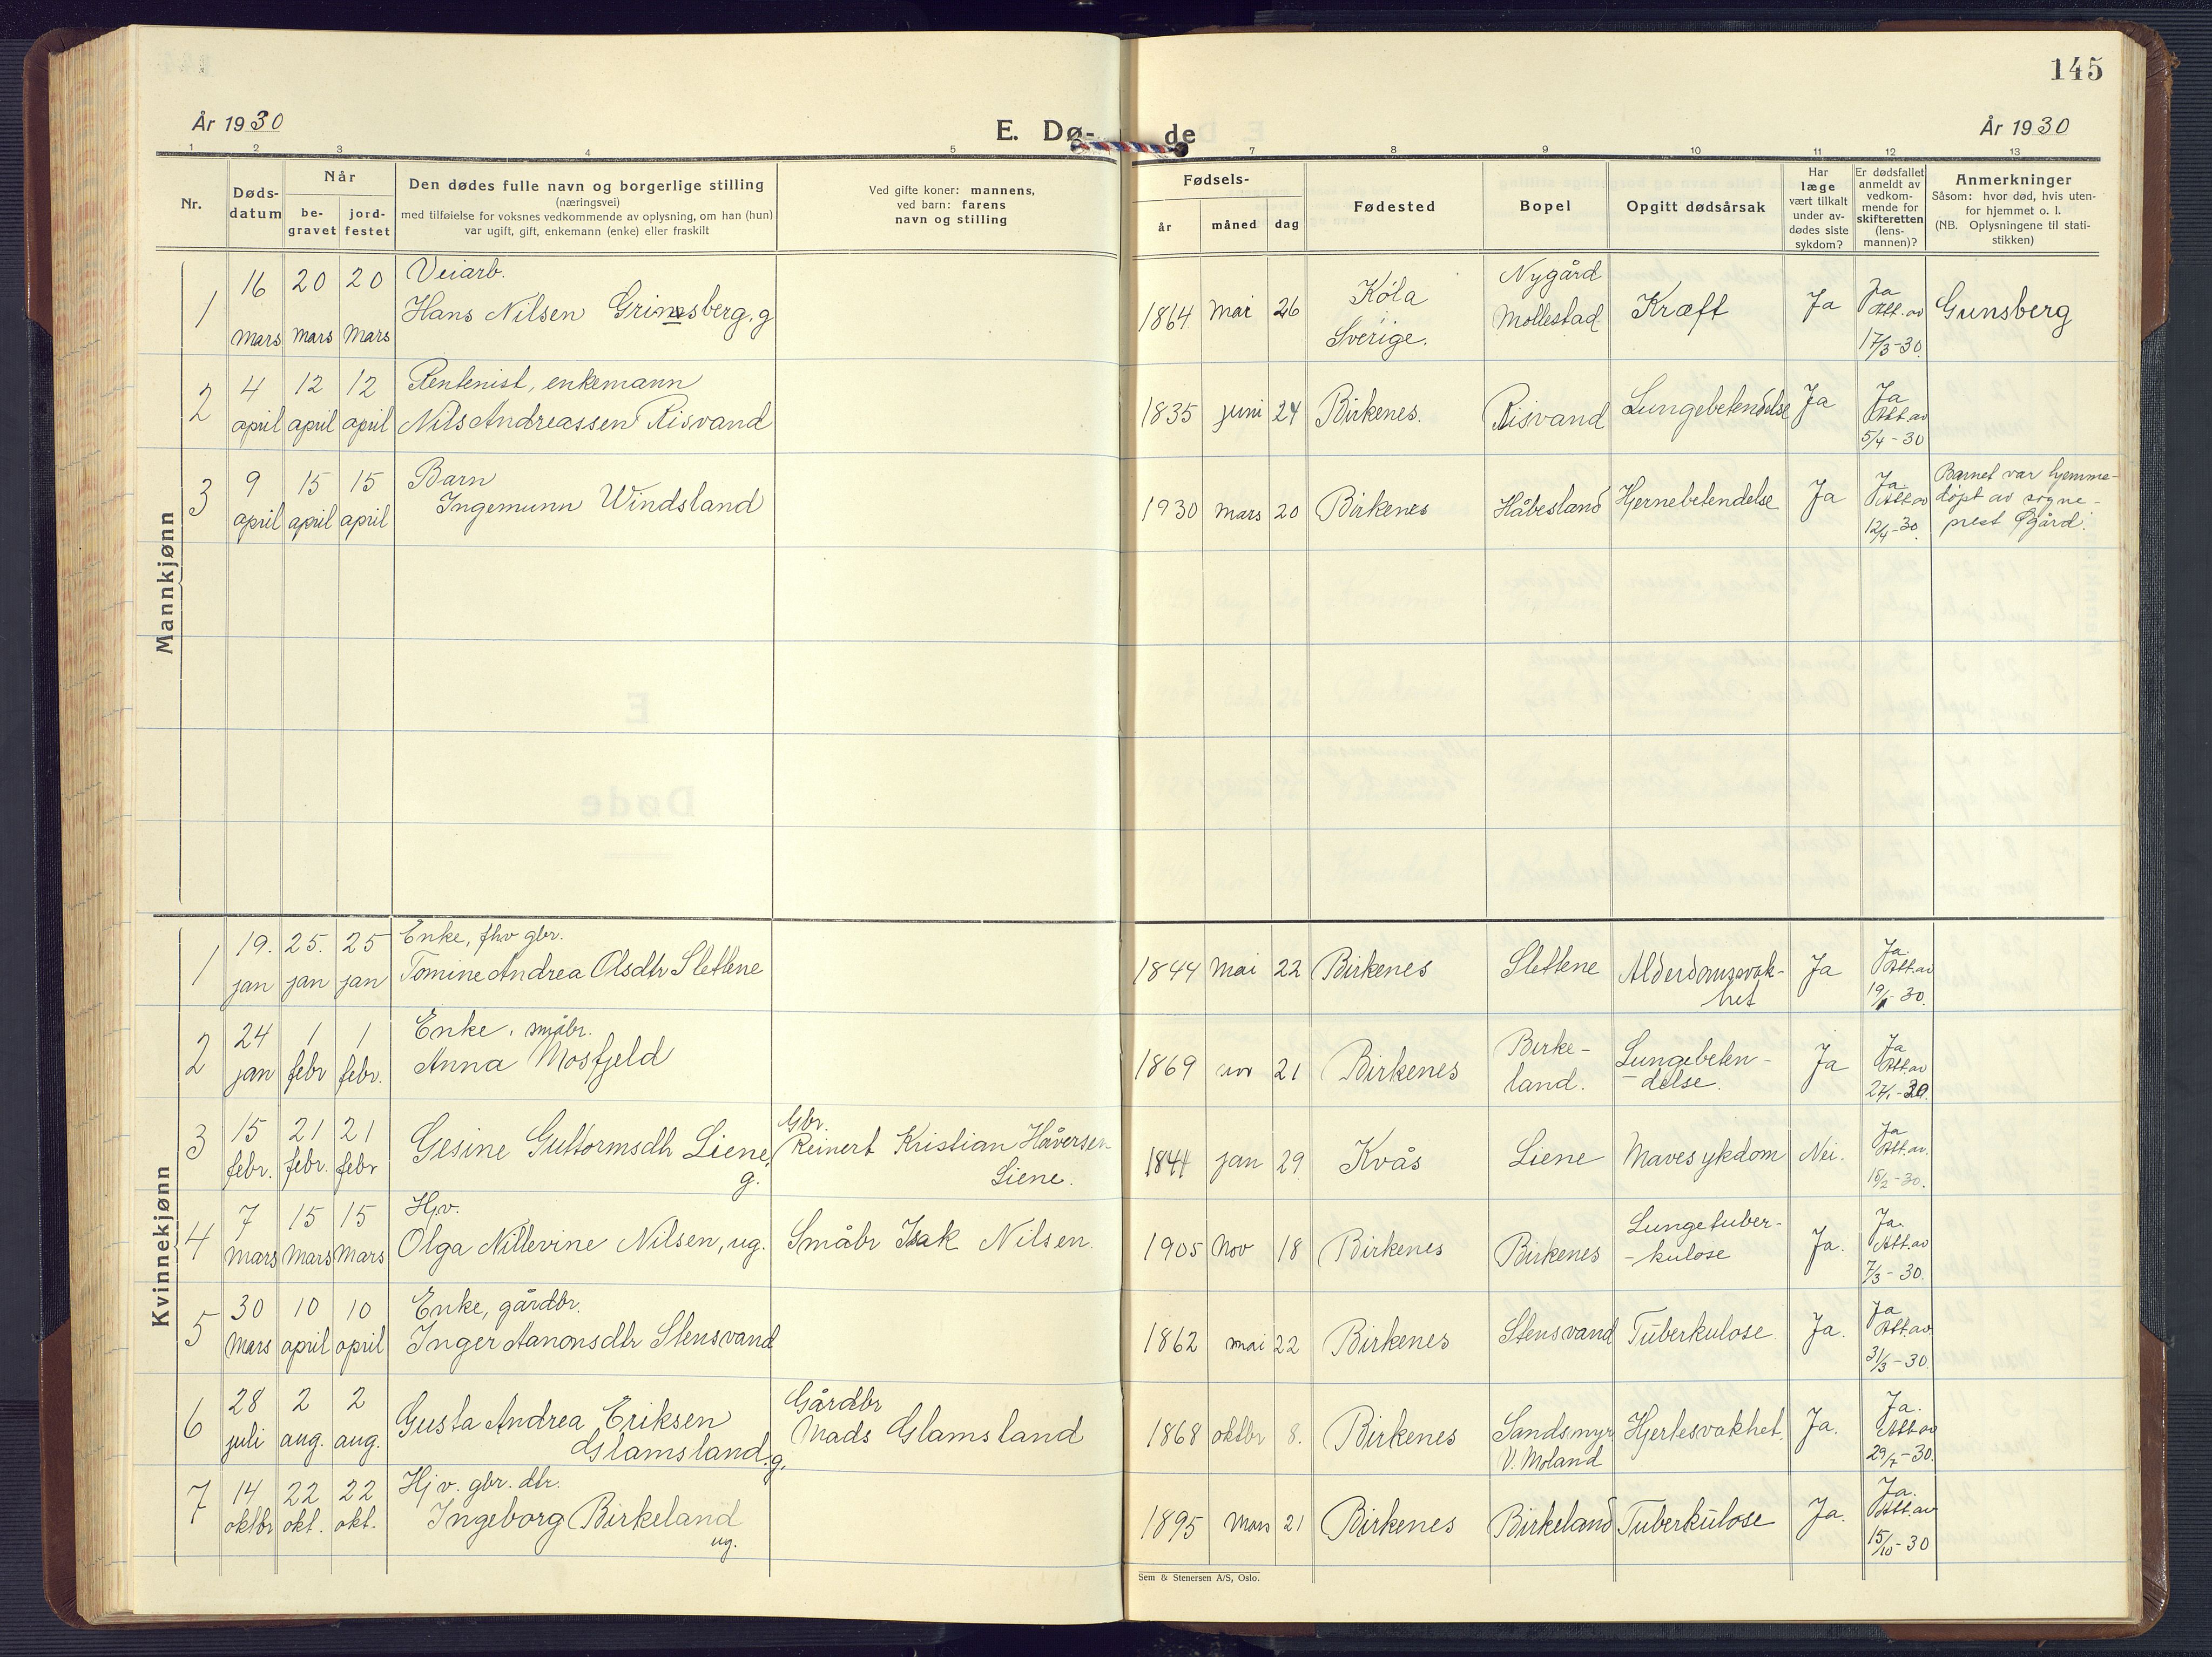 145
År 1930
E. Dø-
de
År 1930
1 2 3 4 5 7 8 9 10 11 12 13
Nr.
Døds-
datum
Når
be-
gravet
jord-
festet
Den dødes fulle navn og borgerlige stilling
(næringsvei)
med tilføielse for voksnes vedkommende av oplysning, om han (hun)
var ugift, gift, enkemann (enke) eller fraskilt
Ved gifte koner: mannens,
ved barn: farens
navn og stilling
Fødsels-
år måned dag
Fødested
Bopel
Opgitt dødsårsak
Har
læge
vært tilkalt
under av-
dødes siste
sykdom?
Er dødsfallet
anmeldt av
vedkom-
mende for
skifteretten
(lens-
mannen)?
Anmerkninger
Såsom: hvor død, hvis uten-
for hjemmet o. l.
(NB. Oplysningene til stati-
stikken)
Mannkjønn
1
16 mars
20 mars
20 mars
Veiarb.
Hans Nilsen Grimsberg, g
1864 mai 26
Køla
Sverige.
Nygård
Mollestad
Kræft
Ja
Ja
Att. av
17/3-30.
Gunsberg
2
4 april
12 april
12 april
Rentenist, enkemann
Nils Andreassen Risvand
1835 juni 24
Birkenes.
Risvand
Lungebetendelse
Ja
Ja
Att. av
5/4-30
3
9 april
15 april
15 april
Barn
Ingemunn Windsland
1930 mars 20
Birkenes
Håbesland
Hjernebetendelse
Ja
Ja.
Att. av
12/4-30.
Barnet var hjemme-
døpt av sogne-
prest Øgård.
Kvinnekjønn
1
19. jan
25. jan
25 jan
Enke, fhv gbr.
Tomine Andrea Olsdtr Slettene
1844 mai 22
Birkenes
Slettene
Alderdomssvak-
het
Ja
Ja.
Att. av
19/1-30.
2
24 jan
1 febr
1 febr.
Enke, småbr.
Anna Mosfjeld
1869 nov 21
Birkenes
Birke-
land.
Lungebeten-
-delse.
Ja
Ja
Att. av
24/1-30.
3
15 febr.
21 febr.
21 febr
Gesine Guttormsdtr Liene,
g.
Gbr.
Reinert Kristian Håversen
Liene.
1844 jan 29
Kvås
Liene
Mavesykdom
Nei.
Ja
Att. av.
18/2-30.
4
7 mars
15 mars
15 mars
Hjv.
Olga Nillevine Nilsen, ug.
Småbr Isak Nilsen
1905 nov 18
Birkenes
Birkenes
Lungetuber-
-kulose
Ja.
Ja.
Att. av
7/3-30.
5
30 mars
10 april
10 april
Enke, gårdbr.
Inger Aanonsdtr Stensvand
1862 mai 22
Birkenes
Stensvand
Tuberkulose
Ja.
Ja
Att. av
31/3-30.
6
28 juli
2 aug.
2 aug.
Gusta Andrea Eriksen
Glamsland, g.
Gårdbr
Mads Glamsland
1868 oktbr 8.
Birkenes
Sandsmyr
V. Moland
Hjertesvakhet.
Ja.
Ja.
Att. av
29/7-30.
7
14 oktbr
22 okt.
22 okt.
Hjv. gbr. dtr.
Ingeborg Birkeland
ug.
1895 mars 21
Birkenes
Birkeland
Tuberkulose
Ja.
Ja.
Att. av
15/10-30
Sem & Stenersen A/S, Oslo.